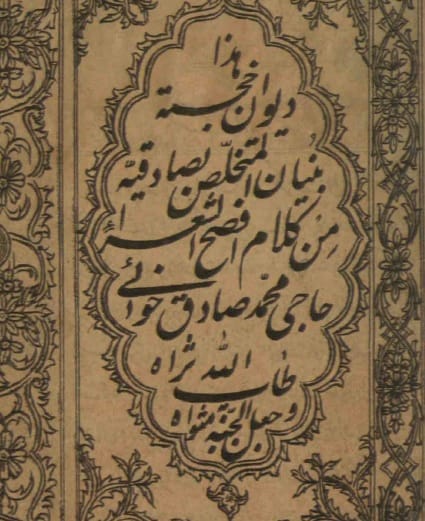 هذا
دیوان خجسته
بنیان المتخلص بصادقیه
من کلام افصح الشعراء
حاجی محمد صادق خوائی
طاب الله ثراه
و جعل الجنة مثواه